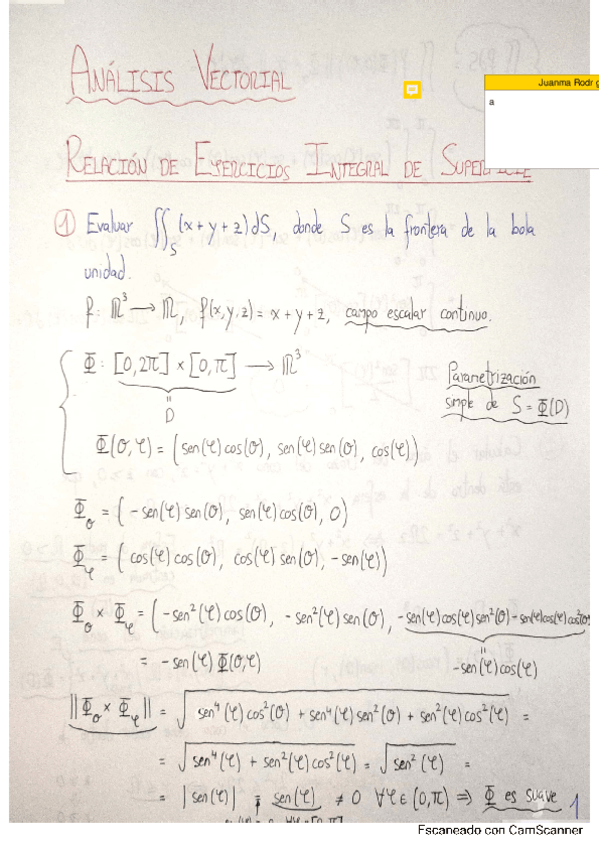 ANÁLISIS VECTORIAL
Juanma Rodríg
a
RELACIÓN DE EJERCICIOS INTEGRAL DE SUPERFICIE
① Evaluar ∬_S (x+y+z)dS, donde S es la frontera de la bola
unidad.
f: ℝ³ → ℝ, f(x,y,z) = x+y+z, campo escalar continuo.
Φ: [0,2π] × [0,π] → ℝ³
=
D
Parametrización
simple de S = Φ(D)
Φ(θ,φ) = (sen(φ)cos(θ), sen(φ)sen(θ), cos(φ))
Φ_θ = (-sen(φ)sen(θ), sen(φ)cos(θ), 0)
Φ_φ = (cos(φ)cos(θ), cos(φ)sen(θ), -sen(φ))
Φ_θ × Φ_φ = (-sen²(φ)cos(θ), -sen²(φ)sen(θ), -sen(φ)cos(φ)sen²(θ)-sen(φ)cos(φ)cos²(θ)
=
= -sen(φ)Φ(θ,φ)
-sen(φ)cos(φ)
||Φ_θ × Φ_φ|| = √(sen⁴(φ)cos²(θ) + sen⁴(φ)sen²(θ) + sen²(φ)cos²(φ)) =
= √(sen⁴(φ) + sen²(φ)cos²(φ)) = √(sen²(φ)) =
= |sen(φ)| = sen(φ) ≠ 0 ∀φ∈(0,π) ⇒ Φ es suave
1
Escaneado con CamScanner